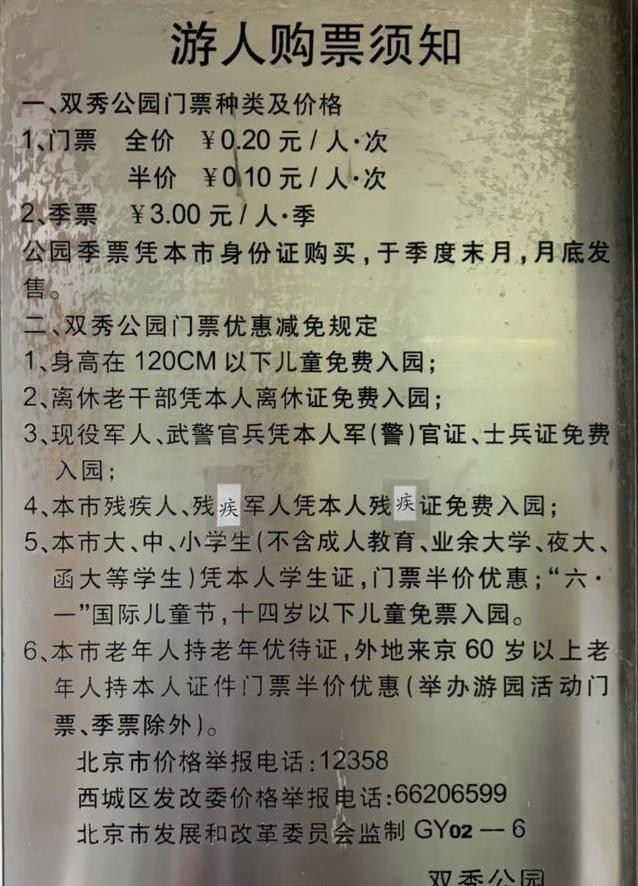 游人购票须知
一、双秀公园门票种类及价格
1、门票 全价 ¥0.20元/人·次
半价 ¥0.10元/人·次
2、季票 ¥3.00元/人·季
公园季票凭本市身份证购买,于季度末月,月底发
售。
二、双秀公园门票优惠减免规定
1、身高在120CM以下儿童免费入园;
2、离休老干部凭本人离休证免费入园;
3、现役军人、武警官兵凭本人军(警)官证、士兵证免费
入园;
4、本市残疾人、残疾军人凭本人残疾证免费入园;
5、本市大、中、小学生(不含成人教育、业余大学、夜大、
函大等学生)凭本人学生证,门票半价优惠;“六·
一”国际儿童节,十四岁以下儿童免票入园。
6、本市老年人持老年优待证,外地来京60岁以上老
年人持本人证件门票半价优惠(举办游园活动门
票、季票除外)。
北京市价格举报电话:12358
西城区发改委价格举报电话:66206599
北京市发展和改革委员会监制 GY02—6
双秀公园